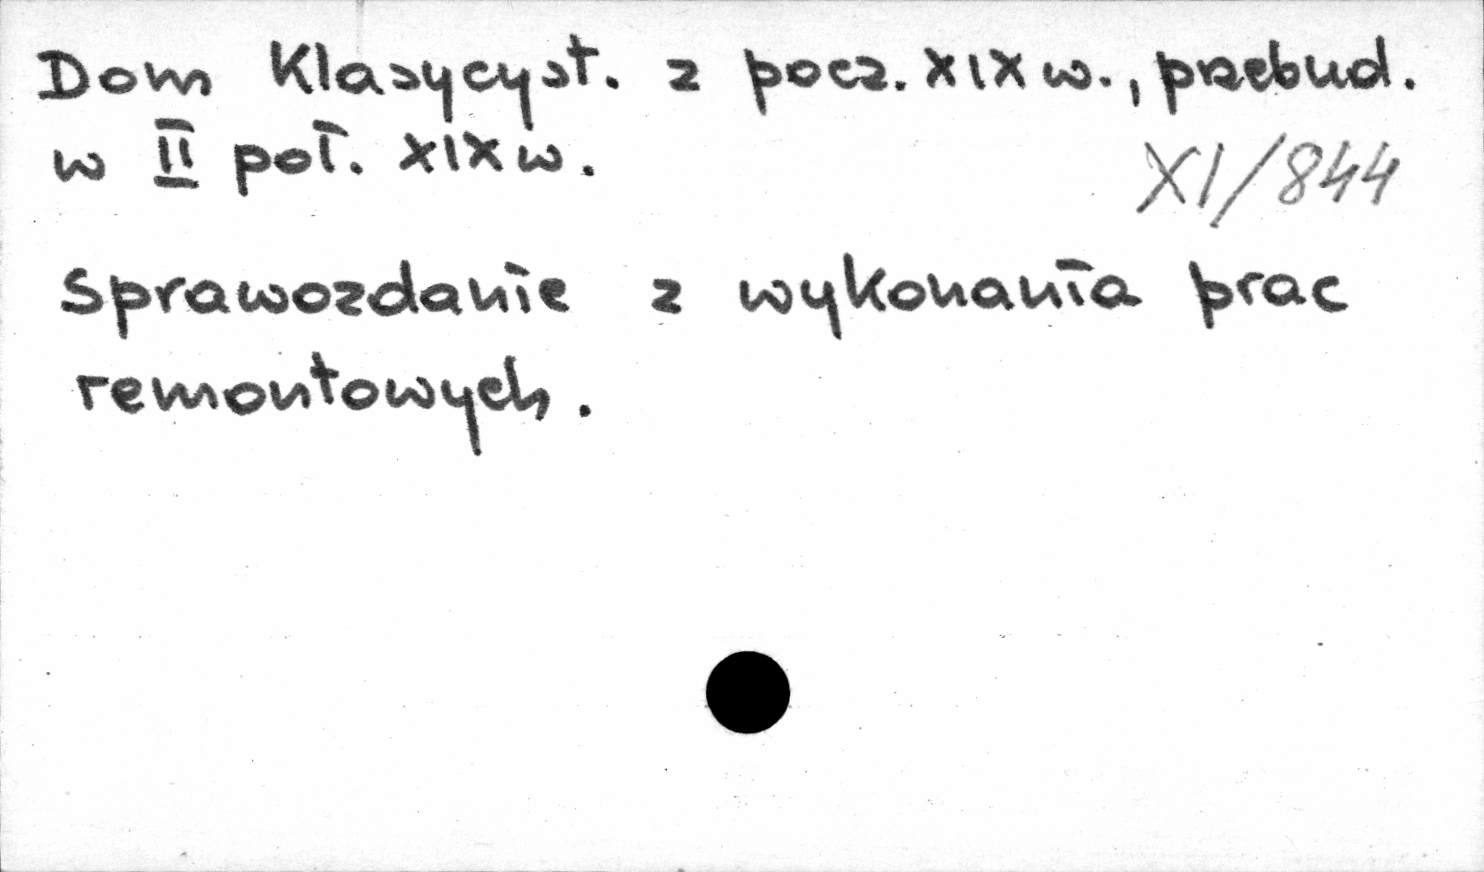 Dom Klasycyst. z pocz. XIX w., przebud.
w II poł. XIX w.
XI/844
Sprawozdanie z wykonania prac
remontowych.